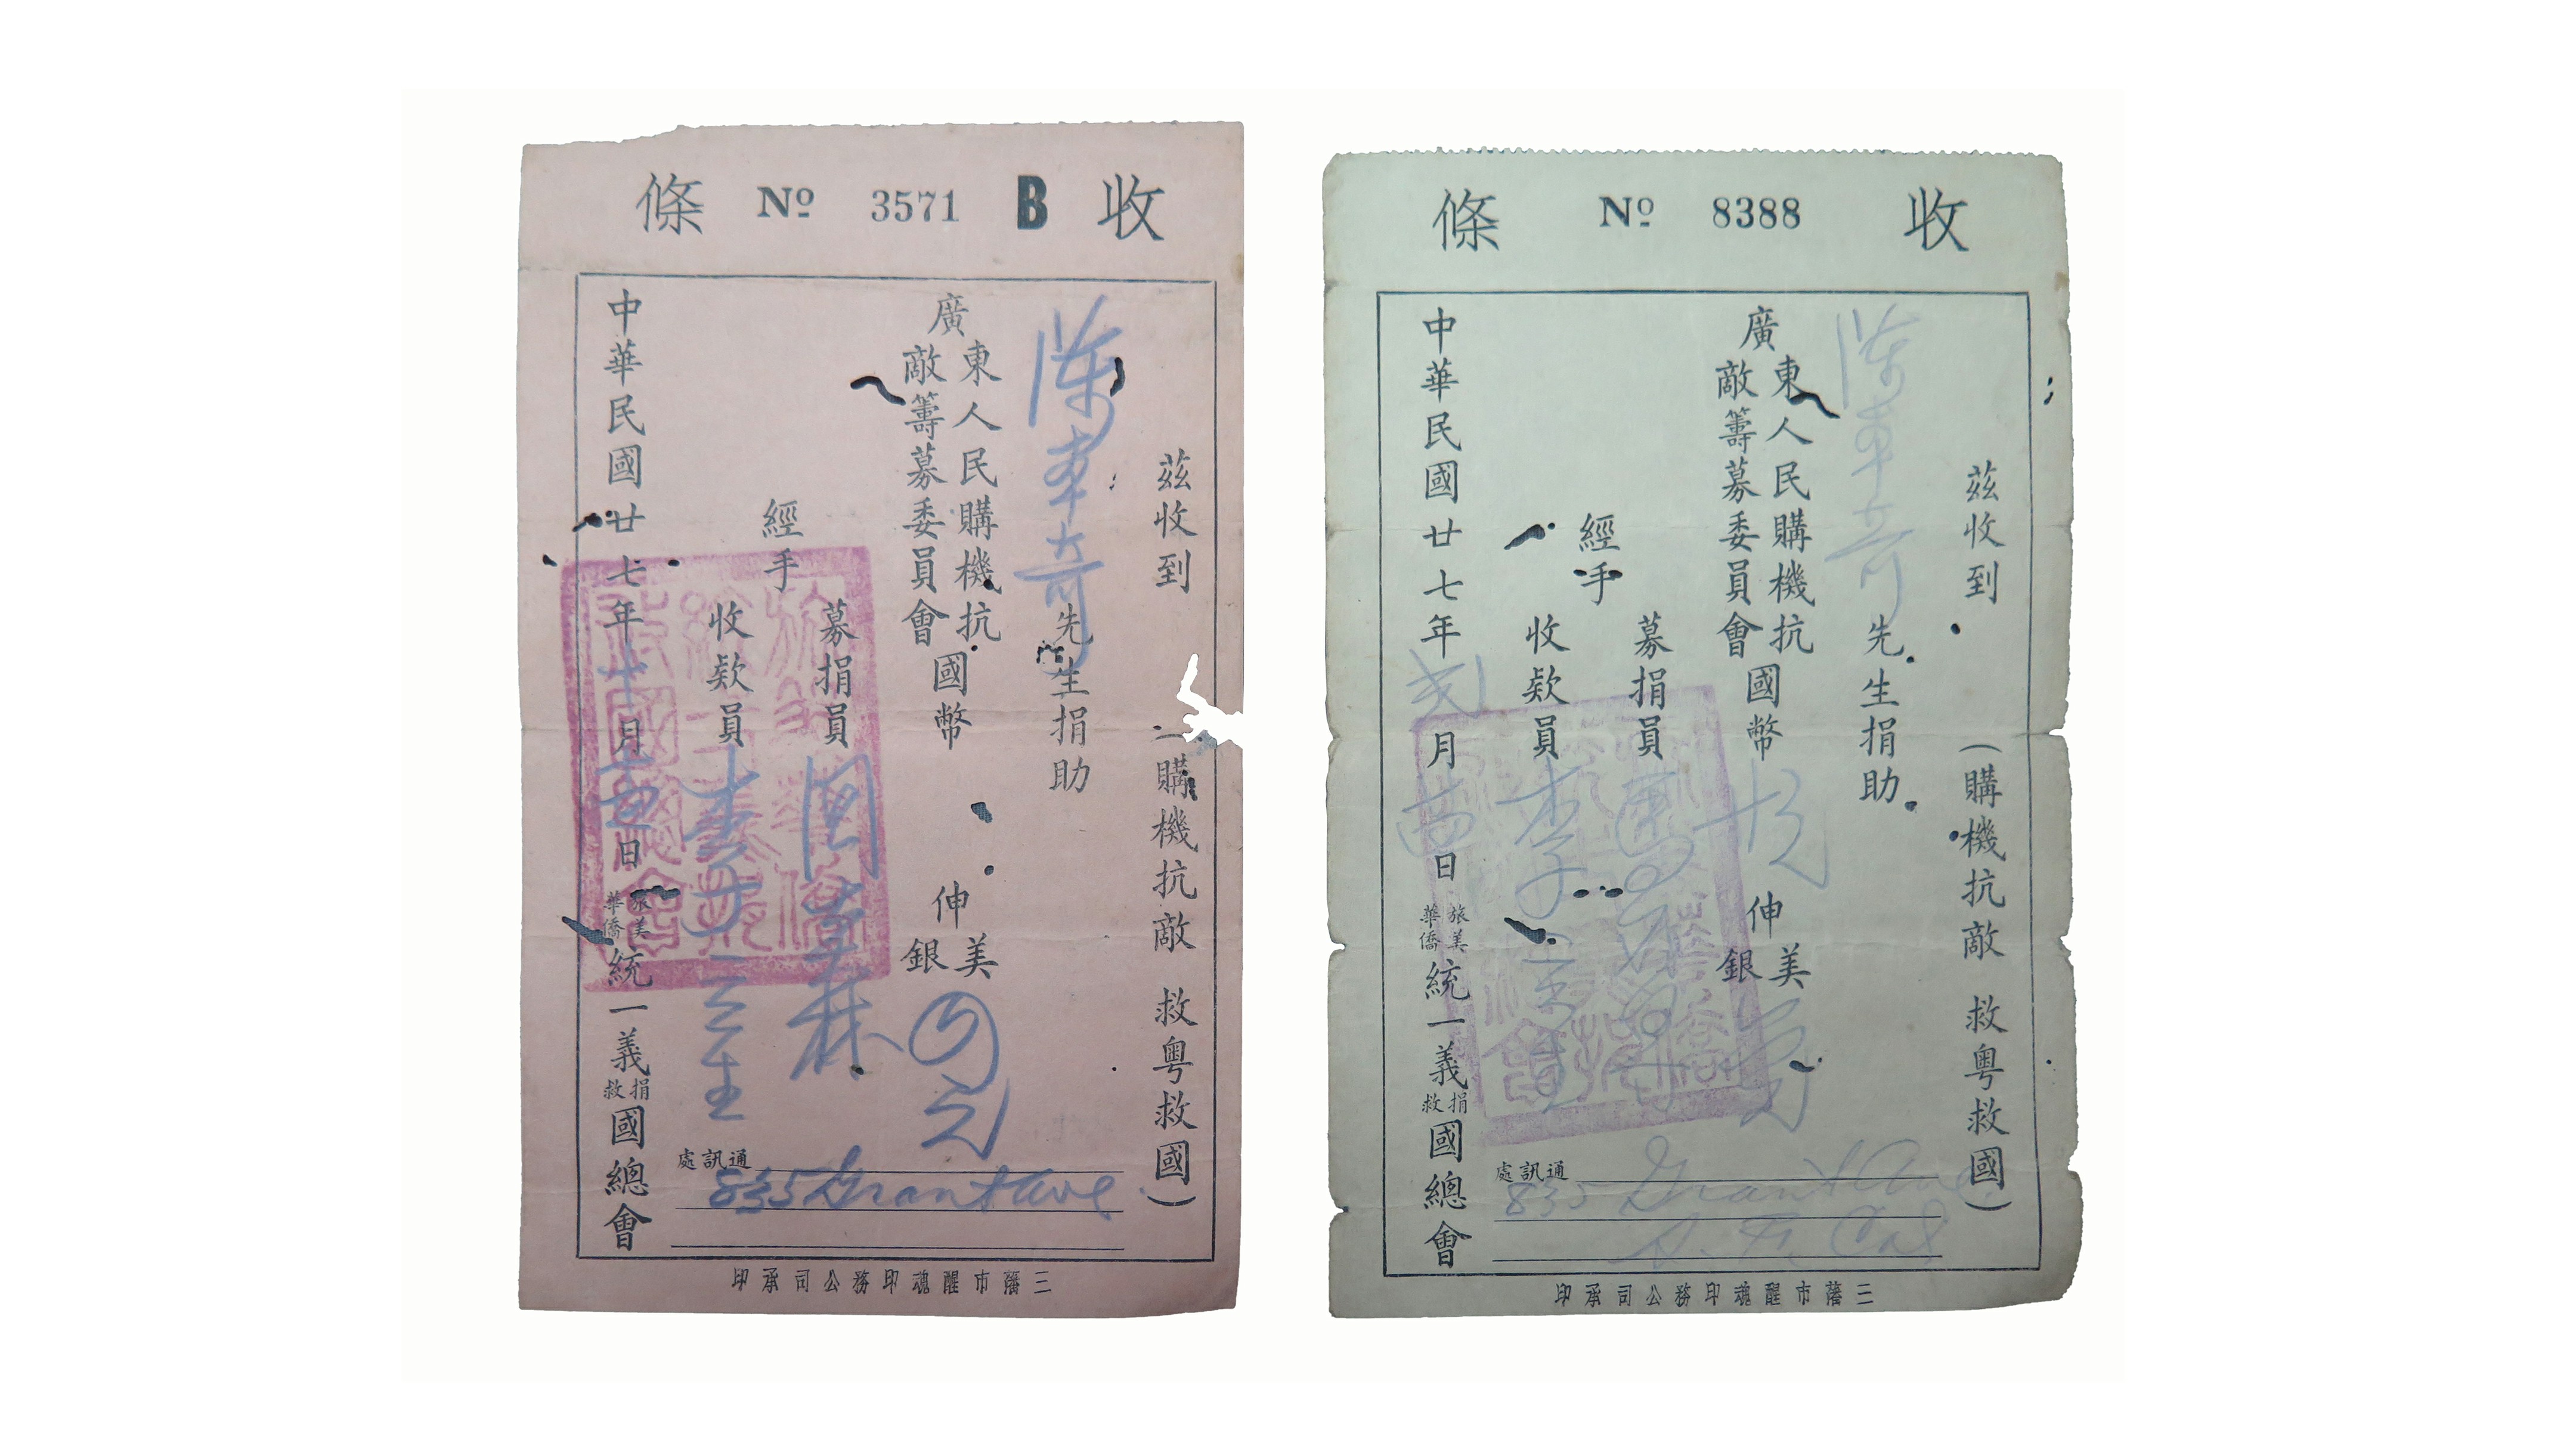 收 B 3571 Nº 條
茲收到 (購機抗敵 救粵救國)
陳車奇 先生捐助
廣東人民購機抗敵籌募委員會 國幣 伸美銀 四元
經手 募捐員
收欵員
中華民國廿七年十月 日
旅美華僑統一義捐救國總會
通訊處
835 Grant Ave.
三藩市醒魂印務公司承印
收 8388 Nº 條
茲收到 (購機抗敵 救粵救國)
陳車奇 先生捐助
廣東人民購機抗敵籌募委員會 國幣 伸美銀
經手 募捐員
收欵員
中華民國廿七年 月 日
旅美華僑統一義捐救國總會
通訊處
835 Grant Ave.
S. F. Cal
三藩市醒魂印務公司承印